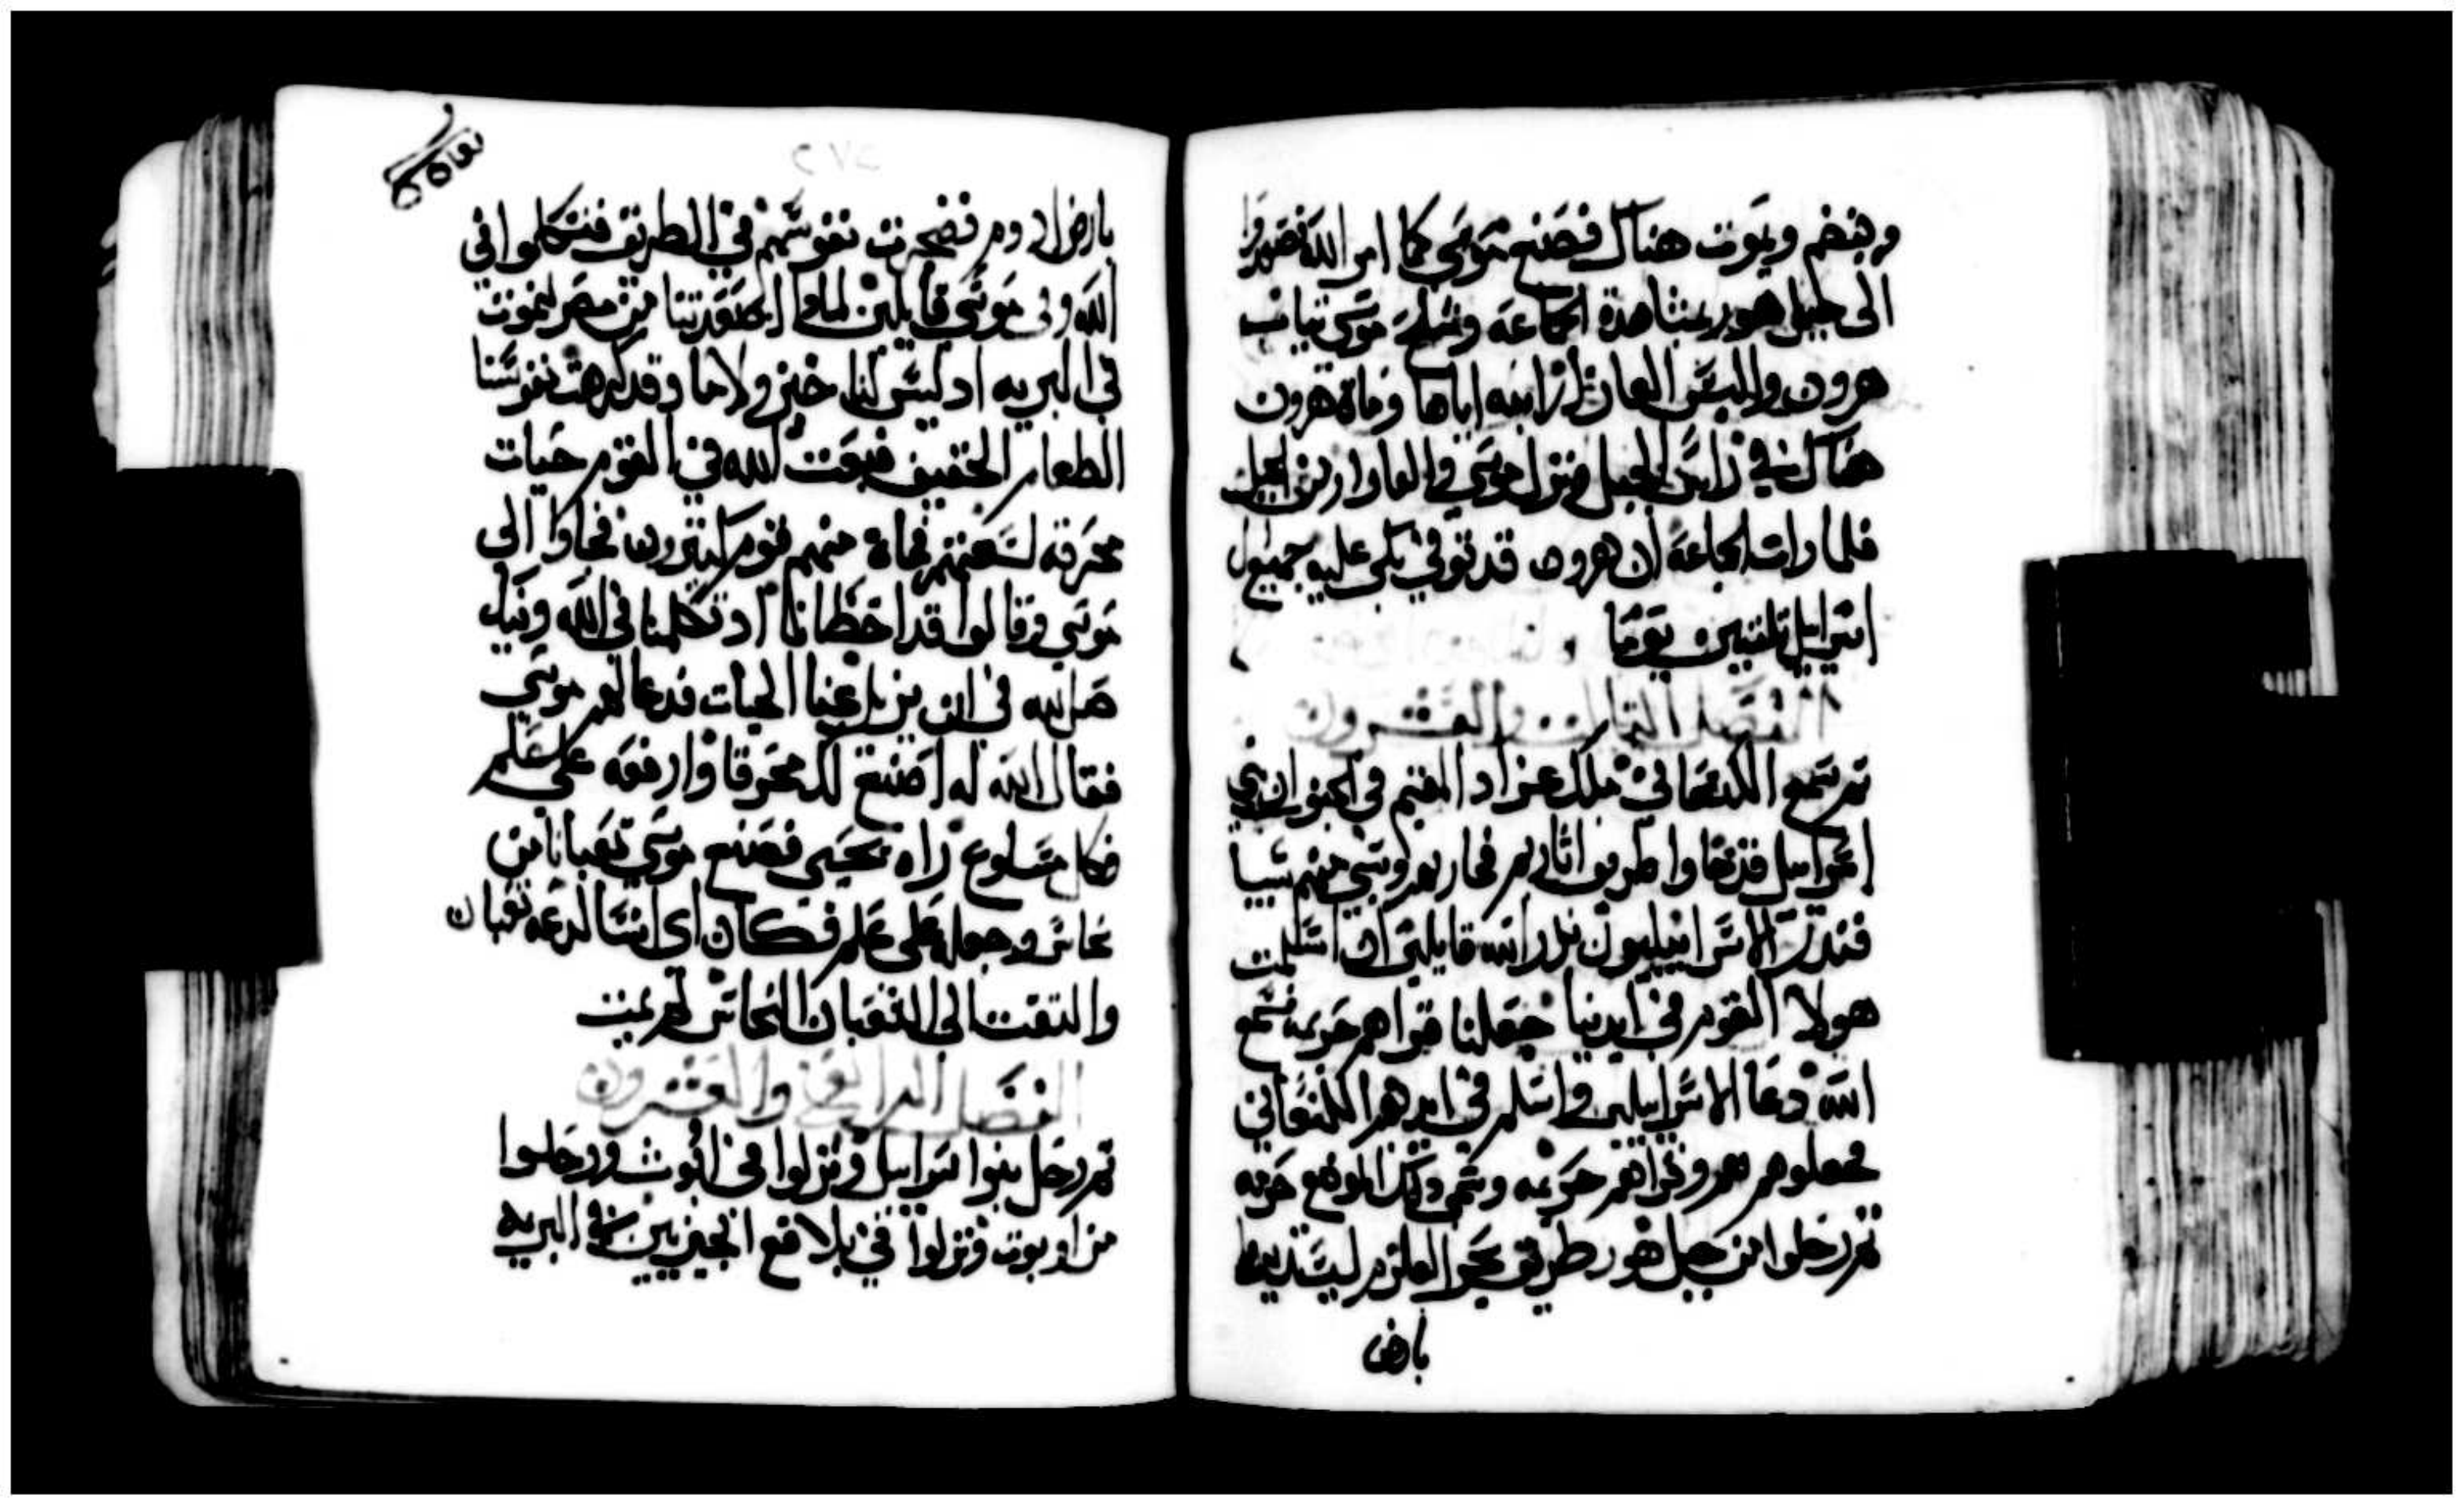 وينضم ويموت هناك فصنع موسي كما امر الله فصعدوا
الى جبل هور بمشاهدة الجماعة وسلح موسي تياب
هرون والبس العازار ابنه اياها ومات هرون
هناك في راس الجبل ونزل موسي والعازار من الجبل
فلما رات الجماعة ان هرون قد توفي بكي عليه جميع ال
اسراييل تلتين يوما
الفصل التالت والعشرون
تم سمع الكنعاني ملك عراد المقيم في الجنوب ان بني
اسراييل قد جاوا طريق اتاريم فحاربهم وسبي منهم سبيا
فندر الاسراييليون ندر الله قايلين ان اسلمت
هولا القوم في ايدينا جعلنا قراهم حرمه فسمع
الله دعا الاسراييلين واسلم في ايديهم الكنعاني
فجعلوهم هم وقراهم حرمه وسمي دلك الموضع حرمه
تم رحلوا من جبل هور طريق بحر القلزم ليستديروا
بارض
بارض ادوم فضجرت نفوسهم في الطريق فتكلموا في
الله وفي موسي قايلين لمادا اصعدتنا من مصر لنموت
في البريه اد ليس لنا خبز ولا ما وقد كرهت نفوسنا
الطعام الخفيف فبعت الله في القوم حيات
محرقه لسعتهم فمات منهم قوم كتيرون فجاوا الي
موسي وقالوا قد اخطانا اد تكلمنا في الله وفيك
صل ليه في ان يزيل عنا الحيات فدعا لهم موسي
فقال الله له اصنع لك محرقا وارفعه على علم
فكل ملسوع راه يحيي فصنع موسي تعبانا من
نحاس وجعله على علم فكان اي انسا لدغه تعبان
والتفت الي التعبان النحاس لم يمت
الفصل الرابع والعشرون
تم رحل بنوا اسراييل ونزلوا في ابوت ورحلوا
من اوبوت ونزلوا في بلاقع المجيزين في البريه